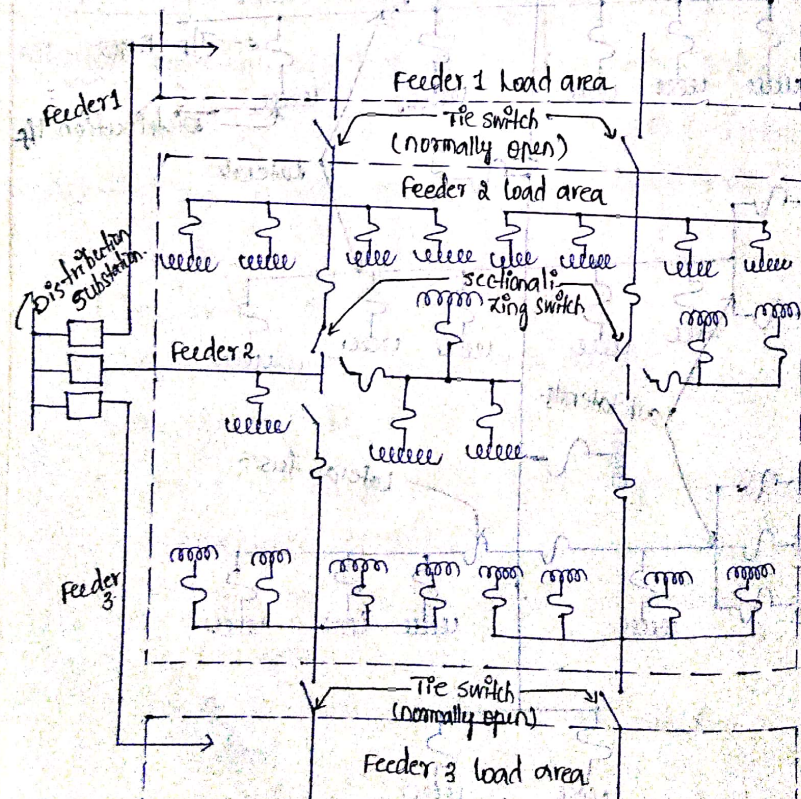 Feeder 1
Feeder 1 Load area
Tie switch
(normally open)
Feeder 2 load area
Distribution
Substation.
Sectionali
zing switch
Feeder 2
Feeder
3
Tie switch
(normally open)
Feeder 3 load area